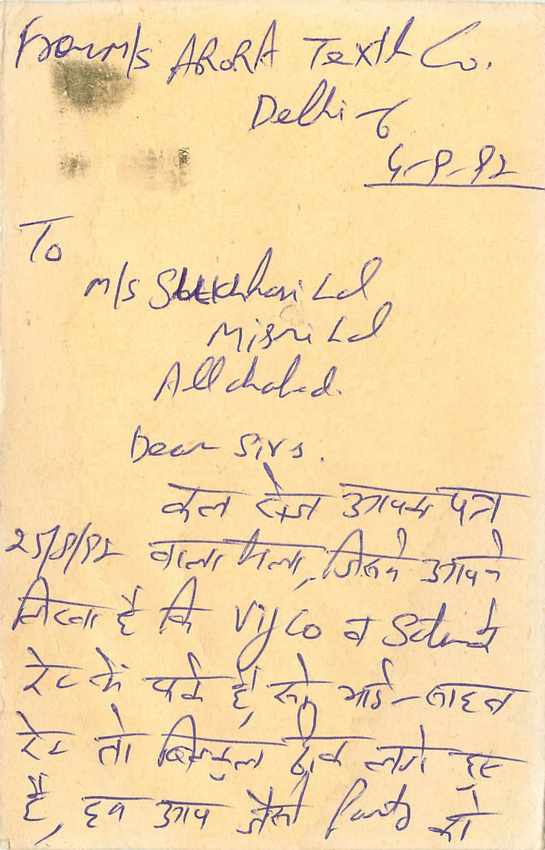 From M/s ARORA Textile Co.
Delhi-6
4-9-92
To
M/s Lal
Misri Lal
Allahabad.
Dear Sirs.
कल रोज आपका पत्र
25/8/92 वाला मिला, जिसमें आपने
लिखा है कि Vijco व
रेट में फर्क है, भाई-साहब
रेट तो बिल्कुल ठीक लगे हुए
हैं, हम आप जैसी Party को